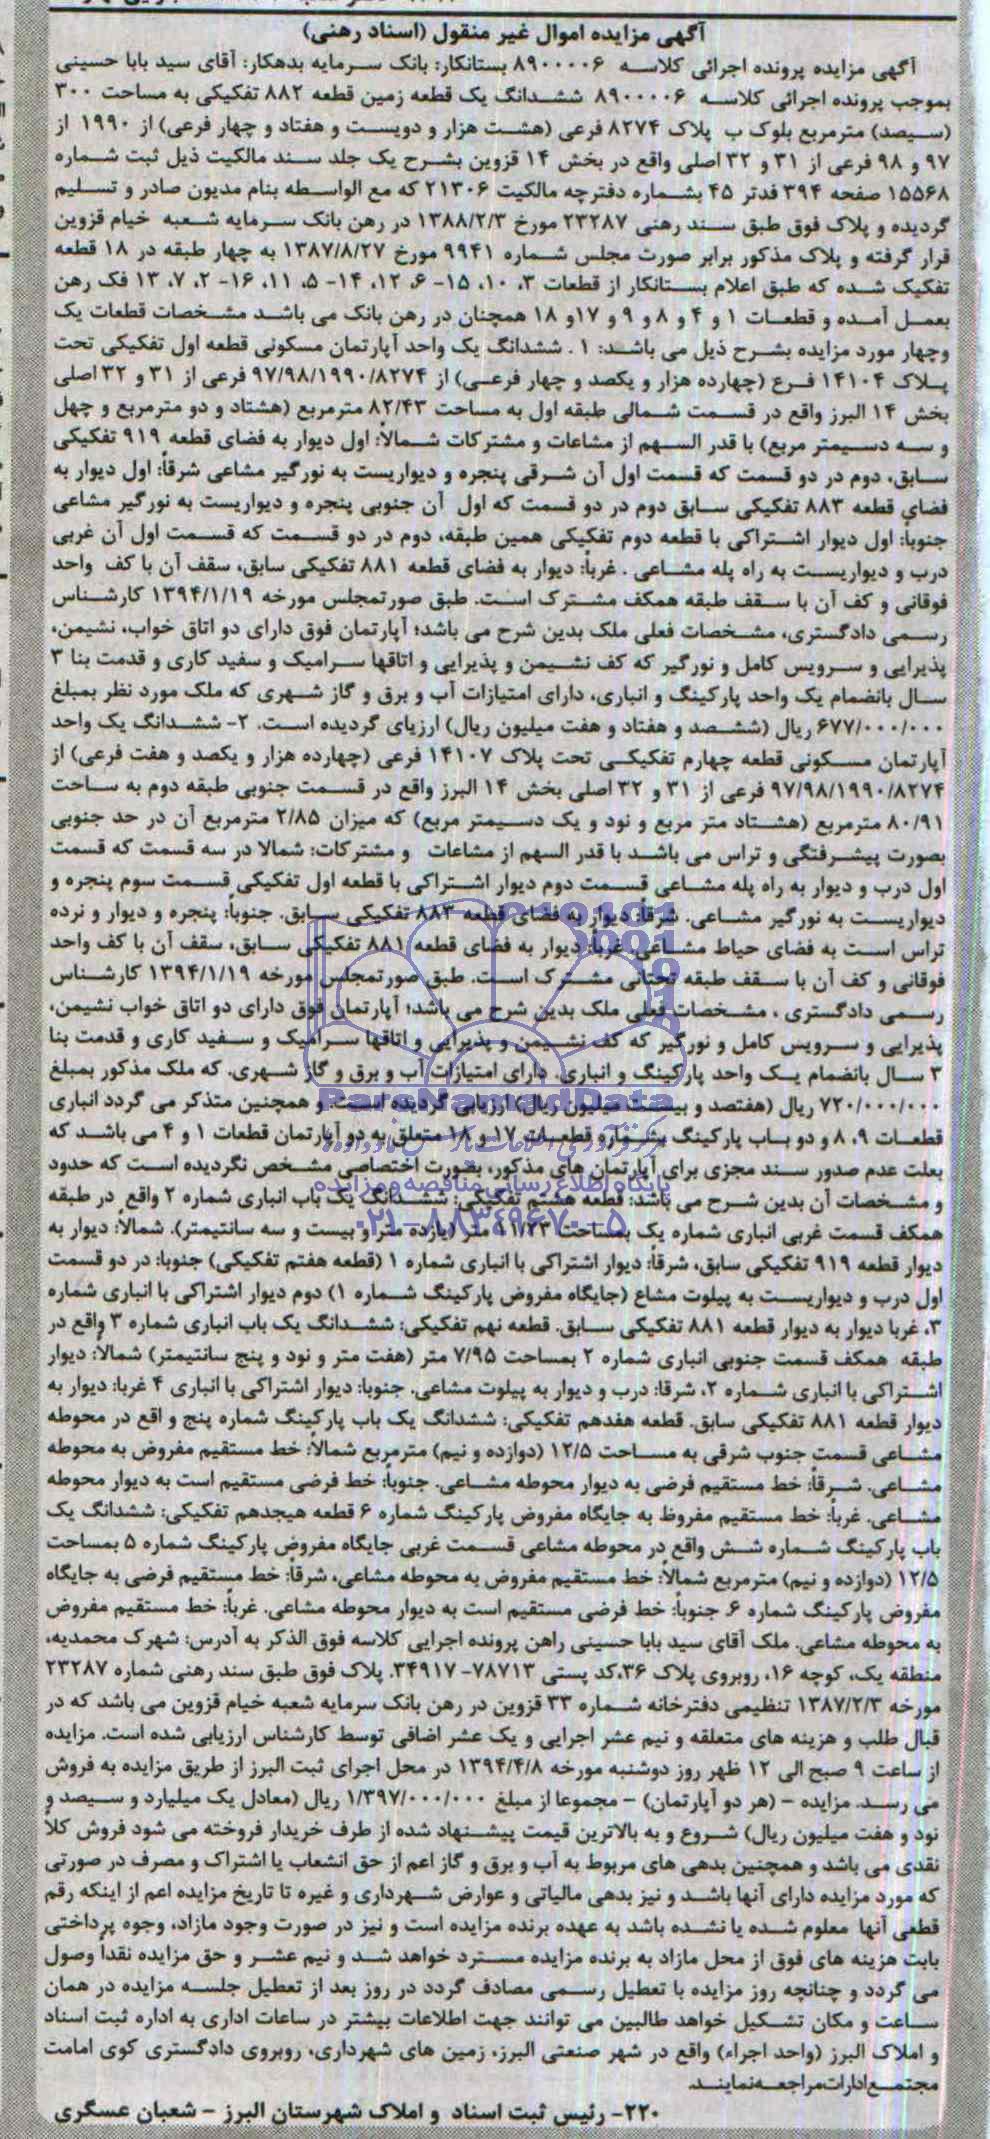 آگهی مزایده اموال غیر منقول (اسناد رهنی)
آگهی مزایده پرونده اجرائی کلاسه ۸۹۰۰۰۰۶ بستانکار: بانک سرمایه بدهکار: آقای سید بابا حسینی
بموجب پرونده اجرائی کلاسه ۸۹۰۰۰۰۶ ششدانگ یک قطعه زمین قطعه ۸۸۲ تفکیکی به مساحت ۳۰۰
(سیصد) مترمربع بلوک ب پلاک ۸۲۷۴ فرعی (هشت هزار و دویست و هفتاد و چهار فرعی) از ۱۹۹۰ از
۹۷ و ۹۸ فرعی از ۳۱ و ۳۲ اصلی واقع در بخش ۱۴ قزوین بشرح یک جلد سند مالکیت ذیل ثبت شماره
۱۵۵۶۸ صفحه ۳۹۴ فدتر ۴۵ بشماره دفترچه مالکیت ۲۱۳۰۶ که مع الواسطه بنام مدیون صادر و تسلیم
گردیده و پلاک فوق طبق سند رهنی ۲۳۲۸۷ مورخ ۱۳۸۸/۲/۳ در رهن بانک سرمایه شعبه خیام قزوین
قرار گرفته و پلاک مذکور برابر صورت مجلس شماره ۹۹۴۱ مورخ ۱۳۸۷/۸/۲۷ به چهار طبقه در ۱۸ قطعه
تفکیک شده که طبق اعلام بستانکار از قطعات ۳، ۱۰، ۱۵- ۶، ۱۲، ۱۴- ۵، ۱۱، ۱۶- ۲، ۷، ۱۳ فک رهن
بعمل آمده و قطعات ۱ و ۴ و ۸ و ۹ و ۱۷و ۱۸ همچنان در رهن بانک می باشد مشخصات قطعات یک
وچهار مورد مزایده بشرح ذیل می باشد: ۱ . ششدانگ یک واحد آپارتمان مسکونی قطعه اول تفکیکی تحت
پلاک ۱۴۱۰۴ فرع (چهارده هزار و یکصد و چهار فرعی) از ۹۷/۹۸/۱۹۹۰/۸۲۷۴ فرعی از ۳۱ و ۳۲ اصلی
بخش ۱۴ البرز واقع در قسمت شمالی طبقه اول به مساحت ۸۲/۴۳ مترمربع (هشتاد و دو مترمربع و چهل
و سه دسیمتر مربع) با قدر السهم از مشاعات و مشترکات شمالاً: اول دیوار به فضای قطعه ۹۱۹ تفکیکی
سابق، دوم در دو قسمت که قسمت اول آن شرقی پنجره و دیواریست به نورگیر مشاعی شرقاً: اول دیوار به
فضای قطعه ۸۸۳ تفکیکی سابق دوم در دو قسمت که اول آن جنوبی پنجره و دیواریست به نورگیر مشاعی
جنوباً: اول دیوار اشتراکی با قطعه دوم تفکیکی همین طبقه، دوم در دو قسمت که قسمت اول آن غربی
درب و دیواریست به راه پله مشاعی . غرباً: دیوار به فضای قطعه ۸۸۱ تفکیکی سابق، سقف آن با کف واحد
فوقانی و کف آن با سقف طبقه همکف مشترک است. طبق صورتمجلس مورخه ۱۳۹۴/۱/۱۹ کارشناس
رسمی دادگستری، مشخصات فعلی ملک بدین شرح می باشد؛ آپارتمان فوق دارای دو اتاق خواب، نشیمن،
پذیرایی و سرویس کامل و نورگیر که کف نشیمن و پذیرایی و اتاقها سرامیک و سفید کاری و قدمت بنا ۳
سال بانضمام یک واحد پارکینگ و انباری، دارای امتیازات آب و برق و گاز شهری که ملک مورد نظر بمبلغ
۶۷۷/۰۰۰/۰۰۰ ریال (ششصد و هفتاد و هفت میلیون ریال) ارزیای گردیده است. ۲- ششدانگ یک واحد
آپارتمان مسکونی قطعه چهارم تفکیکی تحت پلاک ۱۴۱۰۷ فرعی (چهارده هزار و یکصد و هفت فرعی) از
۹۷/۹۸/۱۹۹۰/۸۲۷۴ فرعی از ۳۱ و ۳۲ اصلی بخش ۱۴ البرز واقع در قسمت جنوبی طبقه دوم به ساحت
۸۰/۹۱ مترمربع (هشتاد متر مربع و نود و یک دسیمتر مربع) که میزان ۲/۸۵ مترمربع آن در حد جنوبی
بصورت پیشرفتگی و تراس می باشد با قدر السهم از مشاعات و مشترکات: شمالا در سه قسمت که قسمت
اول درب و دیوار به راه پله مشاعی قسمت دوم دیوار اشتراکی با قطعه اول تفکیکی قسمت سوم پنجره و
دیواریست به نورگیر مشاعی. شرقاً: دیوار به فضای قطعه ۸۸۳ تفکیکی سابق. جنوباً: پنجره و دیوار و نرده
تراس است به فضای حیاط مشاعی. غرباً: دیوار به فضای قطعه ۸۸۱ تفکیکی سابق، سقف آن با کف واحد
فوقانی و کف آن با سقف طبقه تحتانی مشترک است. طبق صورتمجلس مورخه ۱۳۹۴/۱/۱۹ کارشناس
رسمی دادگستری ، مشخصات فعلی ملک بدین شرح می باشد؛ آپارتمان فوق دارای دو اتاق خواب نشیمن،
پذیرایی و سرویس کامل و نورگیر که کف نشیمن و پذیرایی و اتاقها سرامیک و سفید کاری و قدمت بنا
۳ سال بانضمام یک واحد پارکینگ و انباری. دارای امتیازات آب و برق و گاز شهری. که ملک مذکور بمبلغ
۷۲۰/۰۰۰/۰۰۰ ریال (هفتصد و بیست میلیون ریال) ارزیابی گردیده است. و همچنین متذکر می گردد انباری
قطعات ۹، ۸ و دو باب پارکینگ بشماره قطعات ۱۷ و ۱۸ متعلق به دو آپارتمان قطعات ۱ و ۴ می باشد که
بعلت عدم صدور سند مجزی برای آپارتمان های مذکور، بصورت اختصاصی مشخص نگردیده است که حدود
و مشخصات آن بدین شرح می باشد: قطعه هشتم تفکیکی: ششدانگ یک باب انباری شماره ۲ واقع در طبقه
همکف قسمت غربی انباری شماره یک بمساحت ۱۱/۲۳ متر (یازده متر و بیست و سه سانتیمتر). شمالاً: دیوار به
دیوار قطعه ۹۱۹ تفکیکی سابق، شرقاً: دیوار اشتراکی با انباری شماره ۱ (قطعه هفتم تفکیکی) جنوبا: در دو قسمت
اول درب و دیواریست به پیلوت مشاع (جایگاه مفروض پارکینگ شماره ۱) دوم دیوار اشتراکی با انباری شماره
۳، غربا دیوار به دیوار قطعه ۸۸۱ تفکیکی سابق. قطعه نهم تفکیکی: ششدانگ یک باب انباری شماره ۳ واقع در
طبقه همکف قسمت جنوبی انباری شماره ۲ بمساحت ۷/۹۵ متر (هفت متر و نود و پنج سانتیمتر) شمالاً: دیوار
اشتراکی با انباری شماره ۲، شرقا: درب و دیوار به پیلوت مشاعی. جنوبا: دیوار اشتراکی با انباری ۴ غربا: دیوار به
دیوار قطعه ۸۸۱ تفکیکی سابق. قطعه هفدهم تفکیکی: ششدانگ یک باب پارکینگ شماره پنج و اقع در محوطه
مشاعی قسمت جنوب شرقی به مساحت ۱۲/۵ (دوازده و نیم) مترمربع شمالاً: خط مستقیم مفروض به محوطه
مشاعی. شرقاً: خط مستقیم فرضی به دیوار محوطه مشاعی. جنوباً: خط فرضی مستقیم است به دیوار محوطه
مشاعی. غرباً: خط مستقیم مفروظ به جایگاه مفروض پارکینگ شماره ۶ قطعه هیجدهم تفکیکی: ششدانگ یک
باب پارکینگ شماره شش واقع در محوطه مشاعی قسمت غربی جایگاه مفروض پارکینگ شماره ۵ بمساحت
۱۲/۵ (دوازده و نیم) مترمربع شمالاً: خط مستقیم مفروض به محوطه مشاعی، شرقاً: خط مستقیم فرضی به جایگاه
مفروض پارکینگ شماره ۶. جنوباً: خط فرضی مستقیم است به دیوار محوطه مشاعی. غرباً: خط مستقیم مفروض
به محوطه مشاعی. ملک آقای سید بابا حسینی راهن پرونده اجرایی کلاسه فوق الذکر به آدرس: شهرک محمدیه،
منطقه یک، کوچه ۱۶، روبروی پلاک ۳۶،کد پستی ۷۸۷۱۳- ۳۴۹۱۷. پلاک فوق طبق سند رهنی شماره ۲۳۲۸۷
مورخه ۱۳۸۷/۲/۳ تنظیمی دفترخانه شماره ۳۳ قزوین در رهن بانک سرمایه شعبه خیام قزوین می باشد که در
قبال طلب و هزینه های متعلقه و نیم عشر اجرایی و یک عشر اضافی توسط کارشناس ارزیابی شده است. مزایده
از ساعت ۹ صبح الی ۱۲ ظهر روز دوشنبه مورخه ۱۳۹۴/۴/۸ در محل اجرای ثبت البرز از طریق مزایده به فروش
می رسد. مزایده – (هر دو آپارتمان) – مجموعا از مبلغ ۱/۳۹۷/۰۰۰/۰۰۰ ریال (معادل یک میلیارد و سیصد و
نود و هفت میلیون ریال) شروع و به بالاترین قیمت پیشنهاد شده از طرف خریدار فروخته می شود فروش کلاً
نقدی می باشد و همچنین بدهی های مربوط به آب و برق و گاز اعم از حق انشعاب یا اشتراک و مصرف در صورتی
که مورد مزایده دارای آنها باشد و نیز بدهی مالیاتی و عوارض شهرداری و غیره تا تاریخ مزایده اعم از اینکه رقم
قطعی آنها معلوم شده یا نشده باشد به عهده برنده مزایده است و نیز در صورت وجود مازاد، وجوه پرداختی
بابت هزینه های فوق از محل مازاد به برنده مزایده مسترد خواهد شد و نیم عشر و حق مزایده نقداً وصول
می گردد و چنانچه روز مزایده با تعطیل رسمی مصادف گردد در روز بعد از تعطیل جلسه مزایده در همان
ساعت و مکان تشکیل خواهد طالبین می توانند جهت اطلاعات بیشتر در ساعات اداری به اداره ثبت اسناد
و املاک البرز (واحد اجراء) واقع در شهر صنعتی البرز، زمین های شهرداری، روبروی دادگستری کوی امامت
مجتمع ادارات مراجعه نمایند.
۲۲۰- رئیس ثبت اسناد و املاک شهرستان البرز – شعبان عسگری
ParsNamadData
پایگاه اطلاع رسانی مناقصه و مزایده
۰۲۱-۸۸۳۴۹۶۷۰-۵